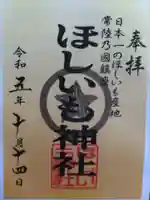 奉拝
日本一のほしいも産地
常陸乃國鎮座
ほしいも神社
令和五年十月十四日